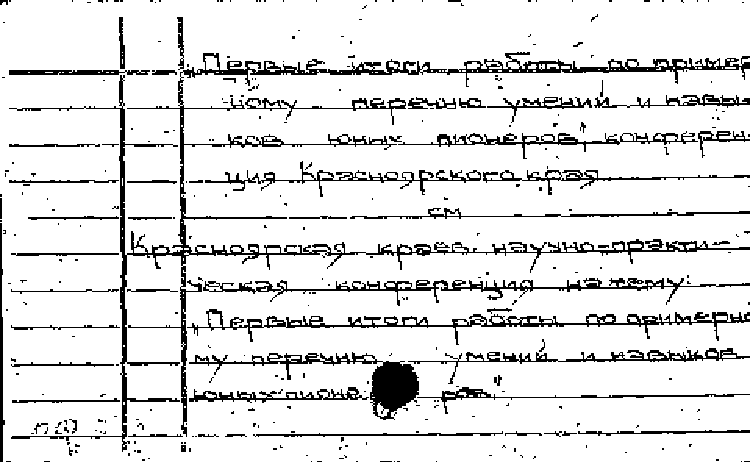 „Первые итоги работы по пример
ному перечню умений и навы
ков юных пионеров", конферен
ция Красноярского края
см
Красноярская краев. научно-практи-
ческая конференция на тему:
„Первые итоги работы по примерно
му перечню умений и навыков
юных пионе ров"